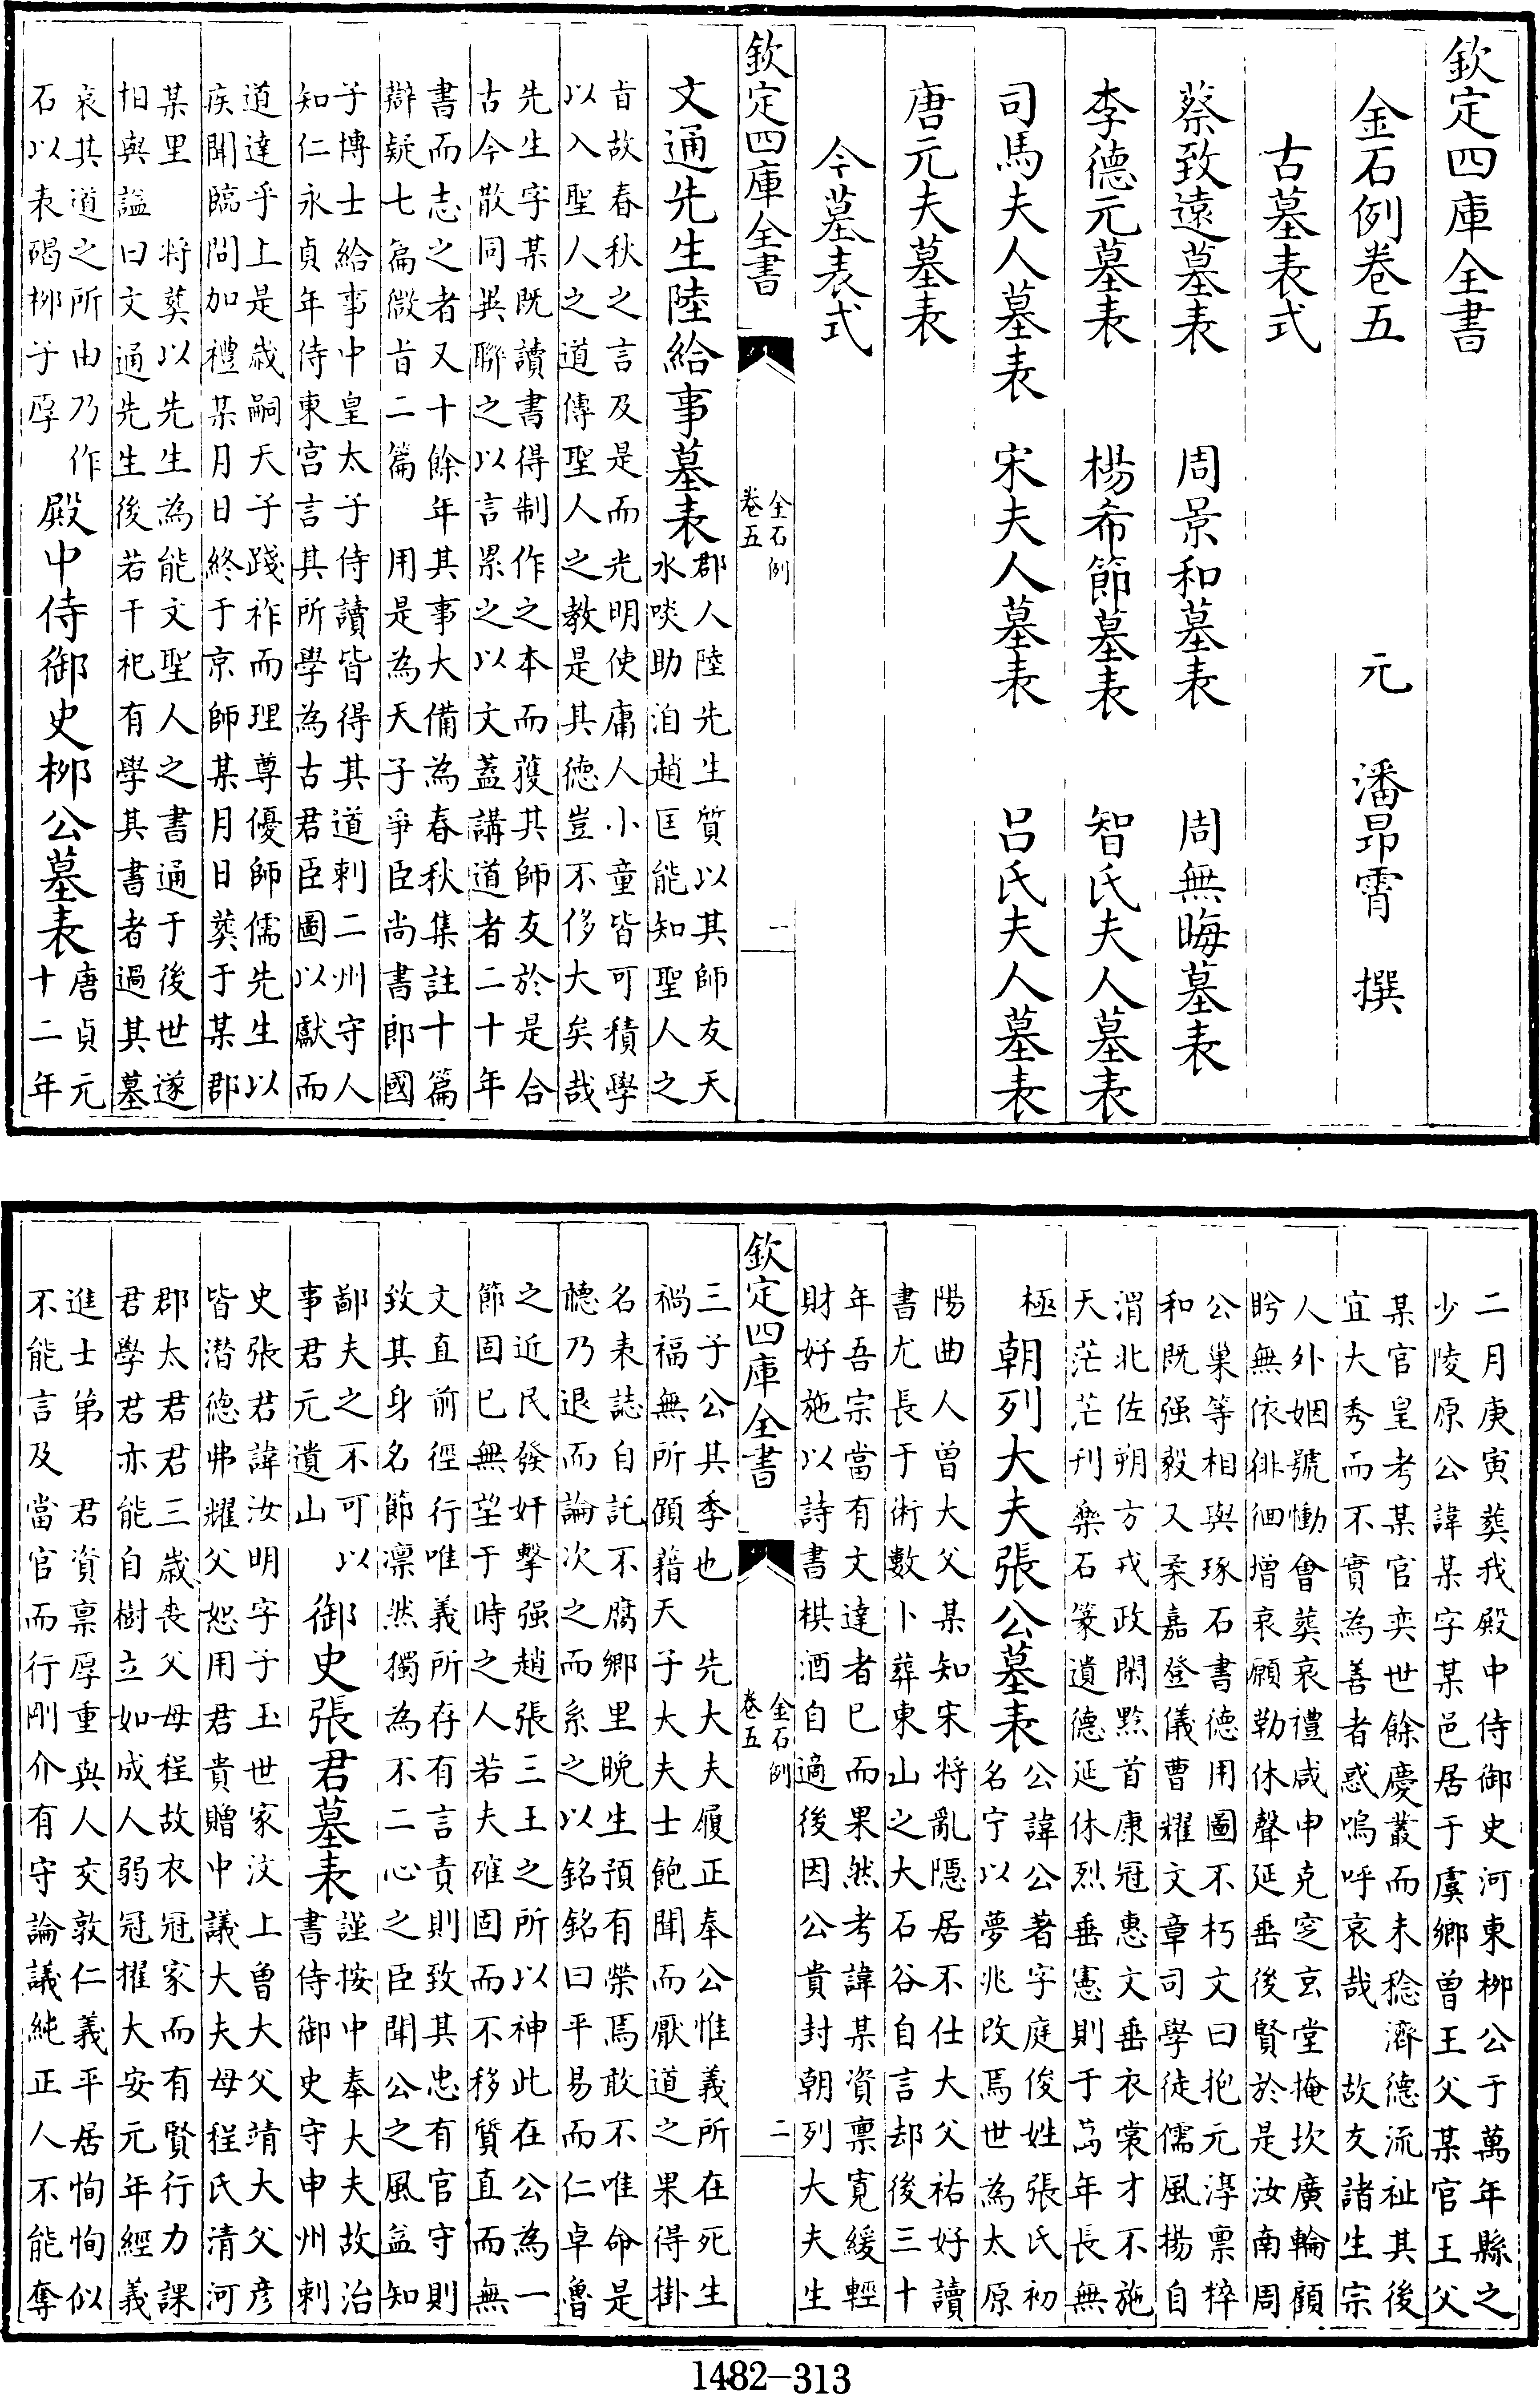 欽定四庫全書
金石例卷五 元 潘昂霄 撰
古墓表式
蔡致遠墓表 周景和墓表 周無晦墓表
李德元墓表 楊希節墓表 智氏夫人墓表
司馬夫人墓表 宋夫人墓表 吕氏夫人墓表
唐元夫墓表
今墓表式
欽定四庫全書 金石例 卷五 一
文通先生陸給事墓表 郡人陸先生質以其師友天
水啖助洎趙匡能知聖人之
旨故春秋之言及是而光明使庸人小童皆可積學
以入聖人之道傳聖人之教是其徳豈不侈大矣哉
先生字某既讀書得制作之本而獲其師友於是合
古今散同異聯之以言累之以文蓋講道者二十年
書而志之者又十餘年其事大備為春秋集註十篇
辯疑七篇微旨二篇 用是為天子爭臣尚書郎國
子博士給事中皇太子侍讀皆得其道刺二州守人
知仁永貞年侍東宫言其所學為古君臣圖以獻而
道達乎上是歲嗣天子踐祚而理尊優師儒先生以
疾聞臨問加禮某月日終于京師某月日葬于某郡
某里 將葬以先生為能文聖人之書通于後世遂
相與諡曰文通先生後若干祀有學其書者過其墓
哀其道之所由乃作
石以表碣栁子厚
殿中侍御史栁公墓表 唐貞元
十二年
二月庚寅葬我殿中侍御史河東栁公于萬年縣之
少陵原公諱某字某邑居于虞鄉曾王父某官王父
某官皇考某官奕世餘慶叢而未稔濟德流祉其後
宜大秀而不實為善者惑嗚呼哀哉 故友諸生宗
人外姻號慟會葬哀禮咸申克窆玄堂掩坎廣輪顧
眄無依徘徊增哀願勒休聲延垂後賢於是汝南周
公巢等相與琢石書德用圖不朽文曰抱元淳禀粹
和既强毅又柔嘉登儀曹耀文章司學徒儒風揚自
渭北佐朔方戎政閑黔首康冠惠文垂衣裳才不施
天茫茫刋樂石篆遺德延休烈垂憲則于萬年長無
極
朝列大夫張公墓表 公諱公著字庭俊姓張氏初
名宁以夢兆改焉世為太原
陽曲人曾大父某知宋將亂隱居不仕大父祐好讀
書尤長于術數卜葬東山之大石谷自言却後三十
年吾宗當有文達者已而果然考諱某資禀寛緩輕
財好施以詩書棋酒自適後因公貴封朝列大夫生
欽定四庫全書 金石例 卷五 二
三子公其季也 先大夫履正奉公惟義所在死生
禍福無所顧藉天子大夫士飽聞而厭道之果得掛
名表誌自託不腐鄉里晚生預有榮焉敢不唯命是
聽乃退而論次之而系之以銘銘曰平易而仁卓魯
之近民發奸擊强趙張三王之所以神此在公為一
節固已無望于時之人若夫確固而不移質直而無
文直前徑行唯義所存有言責則致其忠有官守則
致其身名節凛然獨為不二心之臣聞公之風益知
鄙夫之不可以
事君元遺山
御史張君墓表 謹按中奉大夫故治
書侍御史守申州刺
史張君諱汝明字子玉世家汶上曾大父靖大父彦
皆潛德弗耀父恕用君貴贈中議大夫母程氏清河
郡太君君三歲丧父母程故衣冠家而有賢行力課
君學君亦能自樹立如成人弱冠擢大安元年經義
進士第 君資禀厚重與人交敦仁義平居恂恂似
不能言及當官而行剛介有守論議純正人不能奪
1482-313